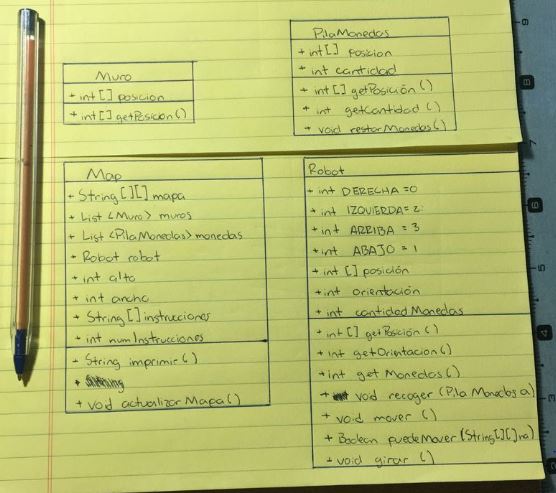 Muro
+ int[] posicion
+ int[] getPosicion()
PilaMonedas
+ int[] posicion
+ int cantidad
+ int[] getPosición()
+ int getCantidad()
+ void restarMonedas()
Map
+ String[][] mapa
+ List <Muro> muros
+ List <PilaMonedas> monedas
+ Robot robot
+ int alto
+ int ancho
+ String[] instrucciones
+ int numInstrucciones
+ String imprimir()
+
+ void actualizarMapa()
Robot
+ int DERECHA = 0
+ int IZQUIERDA = 2
+ int ARRIBA = 3
+ int ABAJO = 1
+ int [] posición
+ int orientación
+ int cantidadMonedas
+ int[] getPosición()
+ int getOrientacion()
+ int getMonedas()
+ void recoger (PilaMonedas a)
+ void mover ()
+ Boolean puedeMover (String[][] ma)
+ void girar ()
9
8
7
6
5
4
3